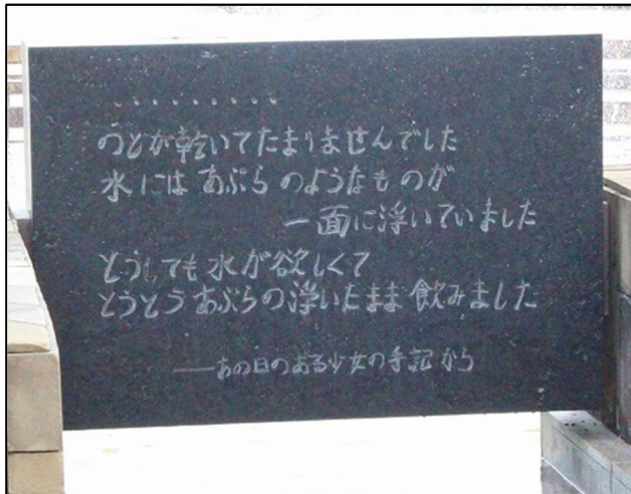 ・・・・・・・・・
のどが乾いてたまりませんでした
水にはあぶらのようなものが
一面に浮いていました
どうしても水が欲しくて
とうとうあぶらの浮いたまま飲みました
――あの日のある少女の手記から